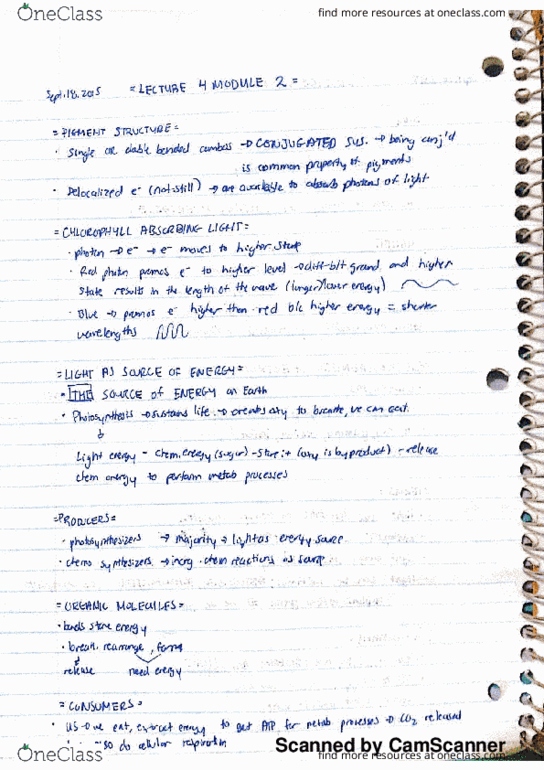 OneClass
find more resources at oneclass.com
Sept.18.2015 = LECTURE 4 MODULE 2 =
= PIGMENT STRUCTURE =
· Single or double bonded carbons → CONJUGATED sys. → being conj'd
is common property of pigments
· Delocalized e⁻ (not still) → are available to absorb photons of light
= CHLOROPHYLL ABSORBING LIGHT =
· photon → e⁻ → e⁻ moves to higher state
· Red photon e⁻ to higher level → diff btt ground and higher
state results in the length of the wave (longer/lower energy)
· Blue → e⁻ higher than red b/c higher energy = shorter
wavelengths
= LIGHT AS SOURCE OF ENERGY =
· THE SOURCE OF ENERGY on Earth
· Photosynthesis → sustains life → to breathe, we can eat.
Light energy - chem. energy (sugar) - store it (is byproduct) - release
chem energy to perform metab processes
= PRODUCERS =
· photosynthesizers → majority → light as energy source
· chemo synthesizers → inorg. chem reactions as source
= ORGANIC MOLECULES =
· bonds store energy
· break, rearrange, form
release need energy
= CONSUMERS =
· US → we eat, extract energy to get ATP for metab processes → CO₂ released
so do cellular respiration
Scanned by CamScanner
OneClass
find more resources at oneclass.com